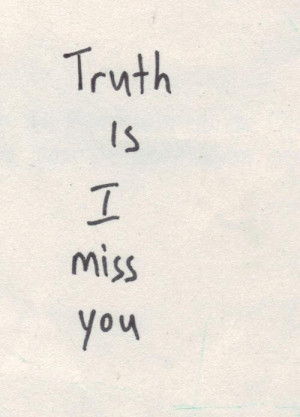 Truth
Is
I
miss
you